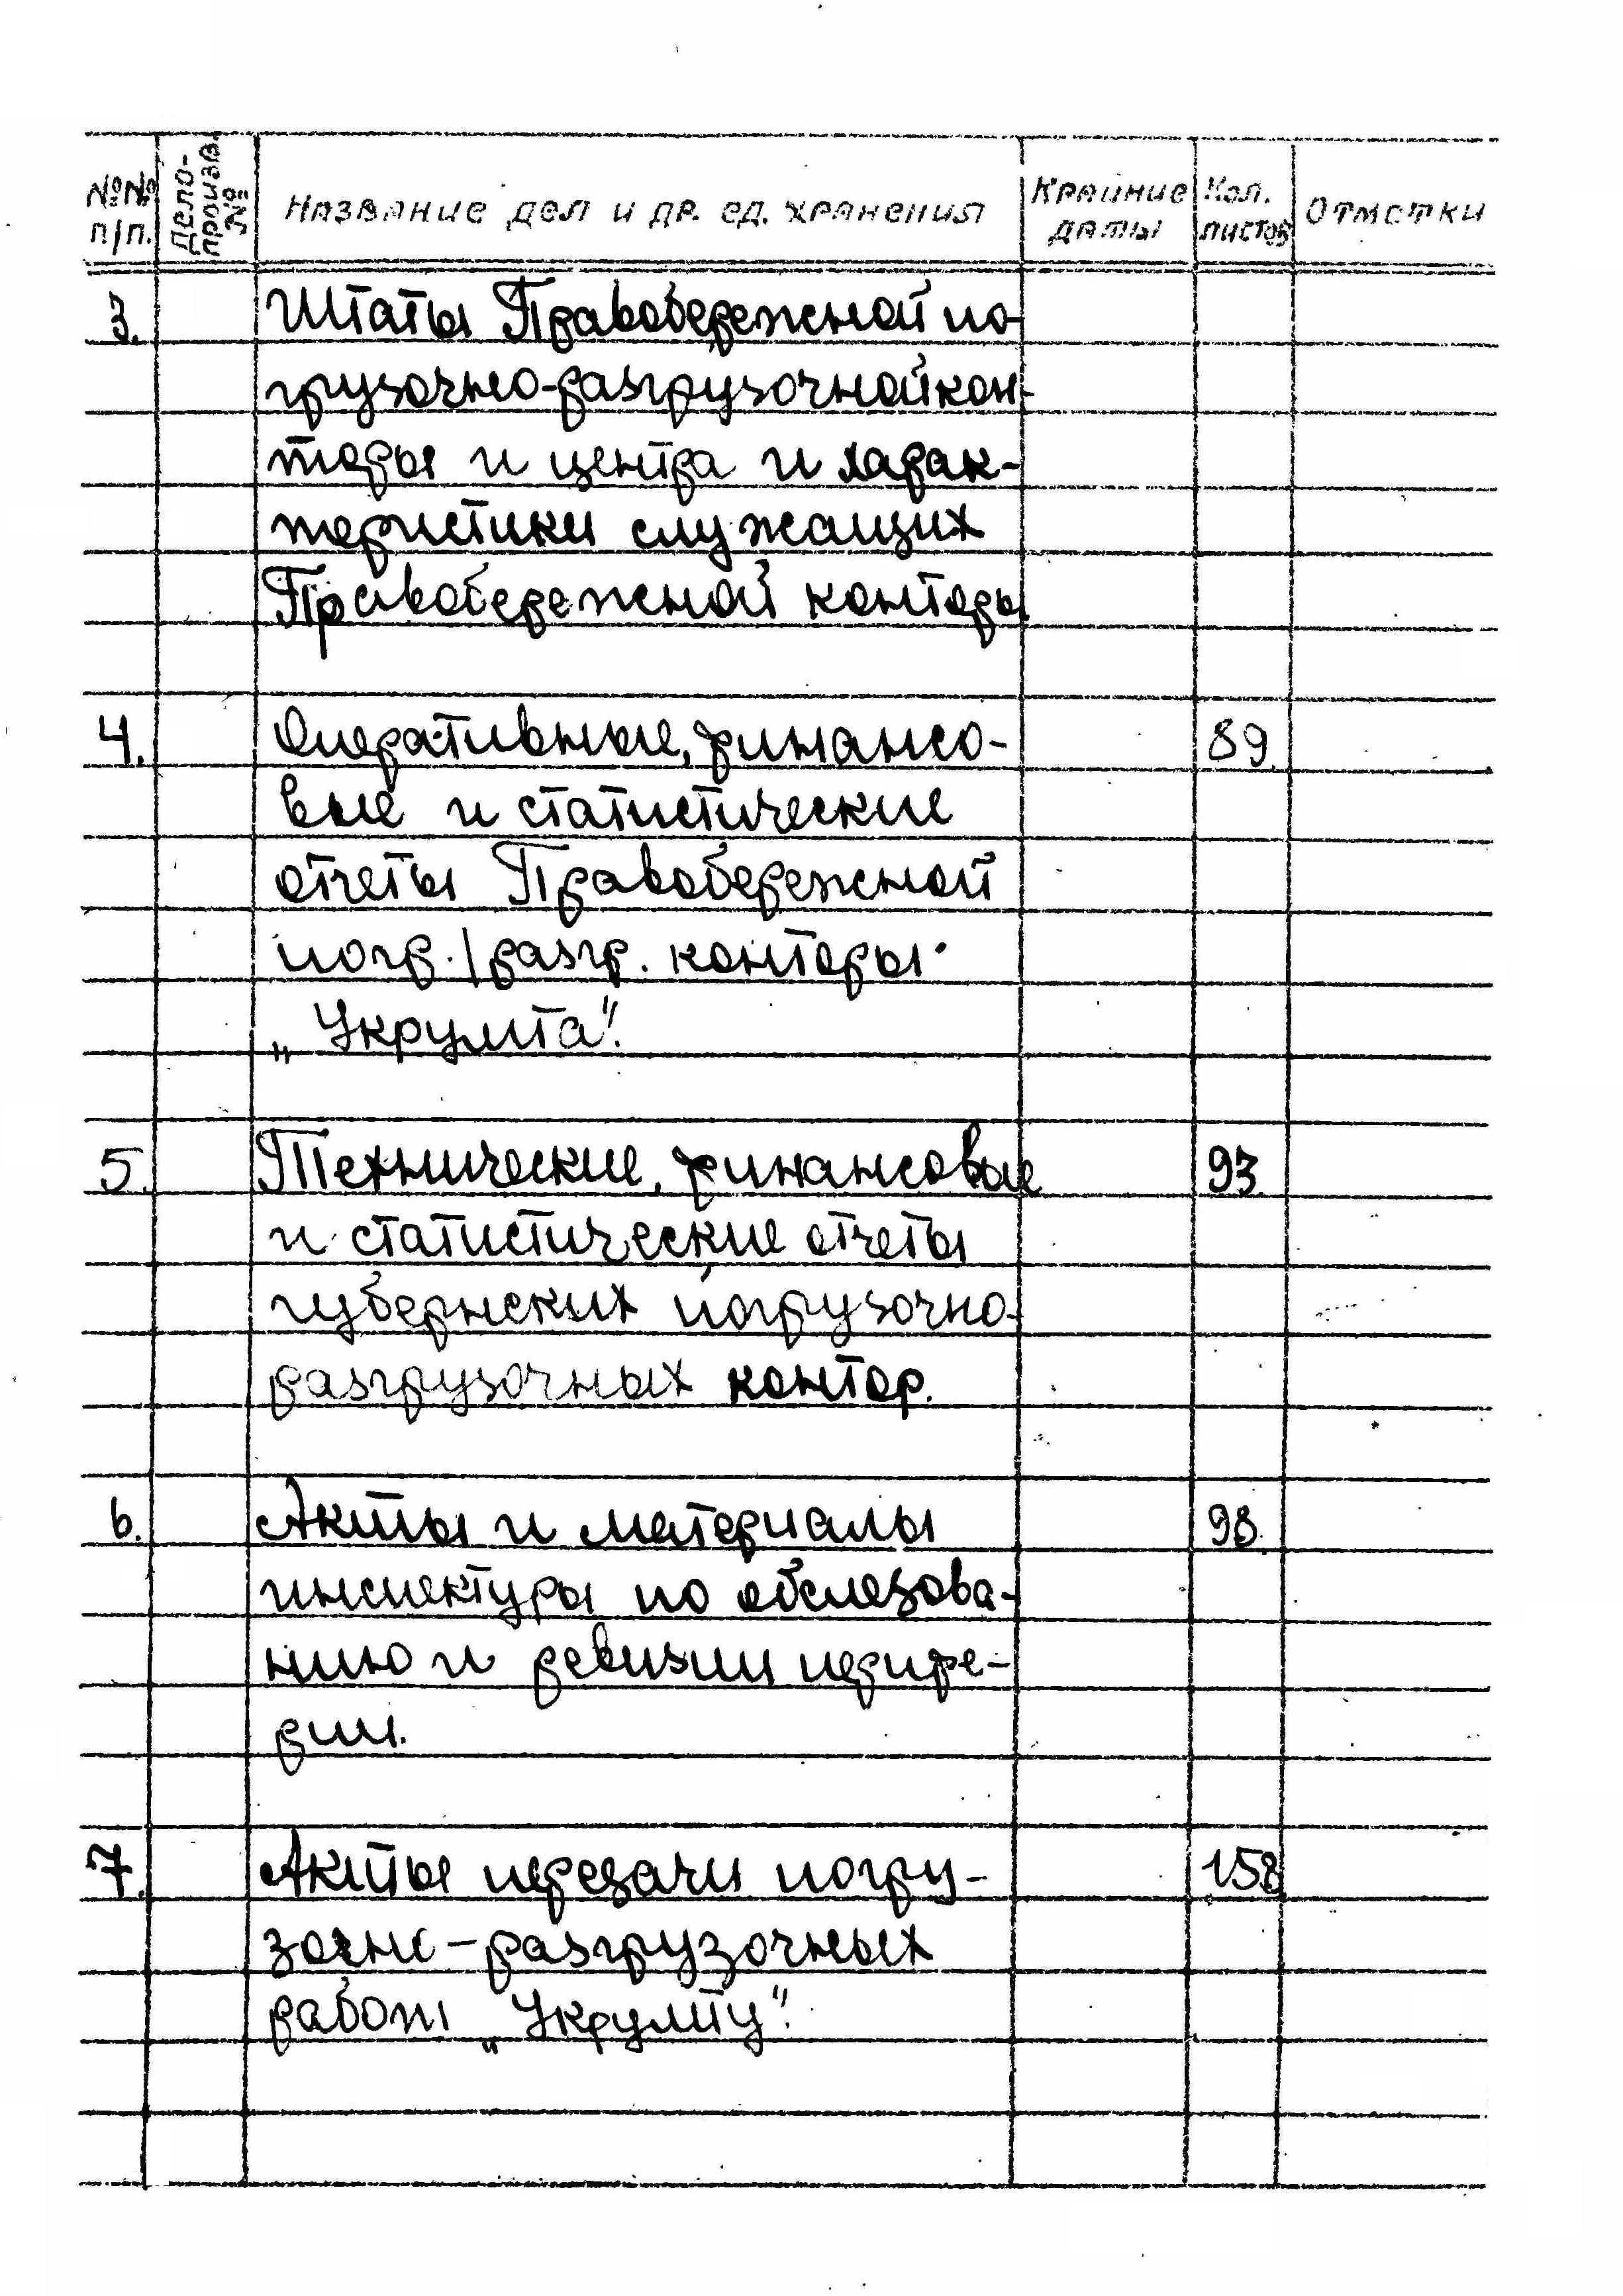 №№ п/п. Дело-произв. № Название дел и др. ед. хранения Крайние даты Кол. листов Отметки
3. Штаты Правобережной по-
грузочно-разгрузочной кон-
торы и центра и харак-
теристики служащих
Правобережной конторы
4. Оперативные, финансо- 89
вые и статистические
отчеты Правобережной
погр./разгр. конторы
„Укрумта".
5. Технические, финансовые 93
и статистические отчеты
губернских погрузочно-
разгрузочных контор.
6. Акты и материалы 98
инспектуры по обследова-
нию и ревизии перифе-
рии.
7. Акты передачи погру- 158
зочно-разгрузочных
работ „Укрумту".